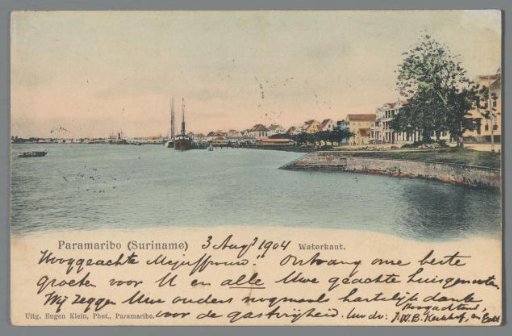 Paramaribo (Suriname) 3 Augs 1904 Waterkant.
Hooggeachte Mejuffrouw! Ontvang onze beste
groeten voor U en alle Uwe geachte huisgenooten.
Wij zeggen Uwe ouders nogmaals hartelijk dank
voor de gastvrijheid. Hoogachtend,
Uitg. Eugen Klein, Phot., Paramaribo. Uw dr. J.W.B. en